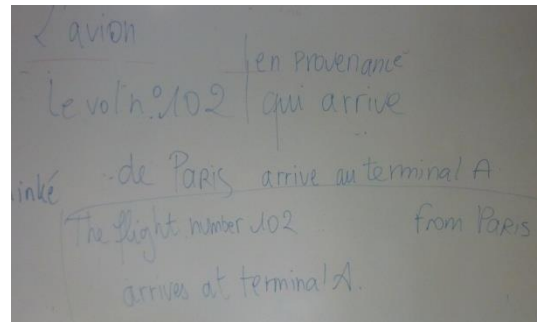 L'avion
le vol n.º 102 en provenance
qui arrive
de PARIS arrive au terminal A
inké
The flight number 102 from PARIS
arrives at terminal A.